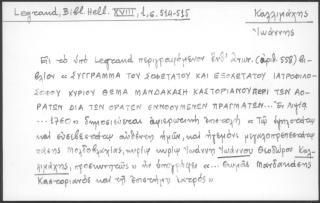 Legrand, Bibl. Hell. XVIII, 1, σ. 514-515
Καλλιμάχης
Ἰωάννης
Εἰς τὸ ὑπὸ Legrand περιγραφόμενον ἐνθ' ἀνωτ. (ἀριθ. 558) βι-
βλίον «ΣΥΓΓΡΑΜΜΑ ΤΟΥ ΣΟΦΩΤΑΤΟΥ ΚΑΙ ΕΞΟΧΩΤΑΤΟΥ ΙΑΤΡΟΦΙΛΟ-
ΣΟΦΟΥ ΚΥΡΙΟΥ ΘΩΜΑ ΜΑΝΔΑΚΑΣΗ ΚΑΣΤΟΡΙΑΝΟΥ ΠΕΡΙ ΤΩΝ ΑΟ-
ΡΑΤΩΝ ΔΙΑ ΤΩΝ ΟΡΑΤΩΝ ΕΝΝΟΟΥΜΕΝΩΝ ΠΡΑΓΜΑΤΩΝ... Ἐν Λειψίᾳ
... 1760» δημοσιεύεται ἀφιερωτικὴ ἐπιστολὴ «Τῷ ὑψηλοτάτῳ
καὶ εὐσεβεστάτῳ αὐθέντῃ ἡμῶν, καὶ ἡγεμόνι μεγαλοπρεπεστάτῳ
πάσης Μολδοβλαχίας, κυρίῳ κυρίῳ Ἰωάννῃ Ἰωάννου Θεοδώρου Καλ-
λιμάχης, προσκυνητῶς» ἐν ὑπογραφῇ «... Θωμᾶς Μανδακάσης
Καστοριανὸς καὶ τῇ ἐπιστήμῃ ἰατρός»